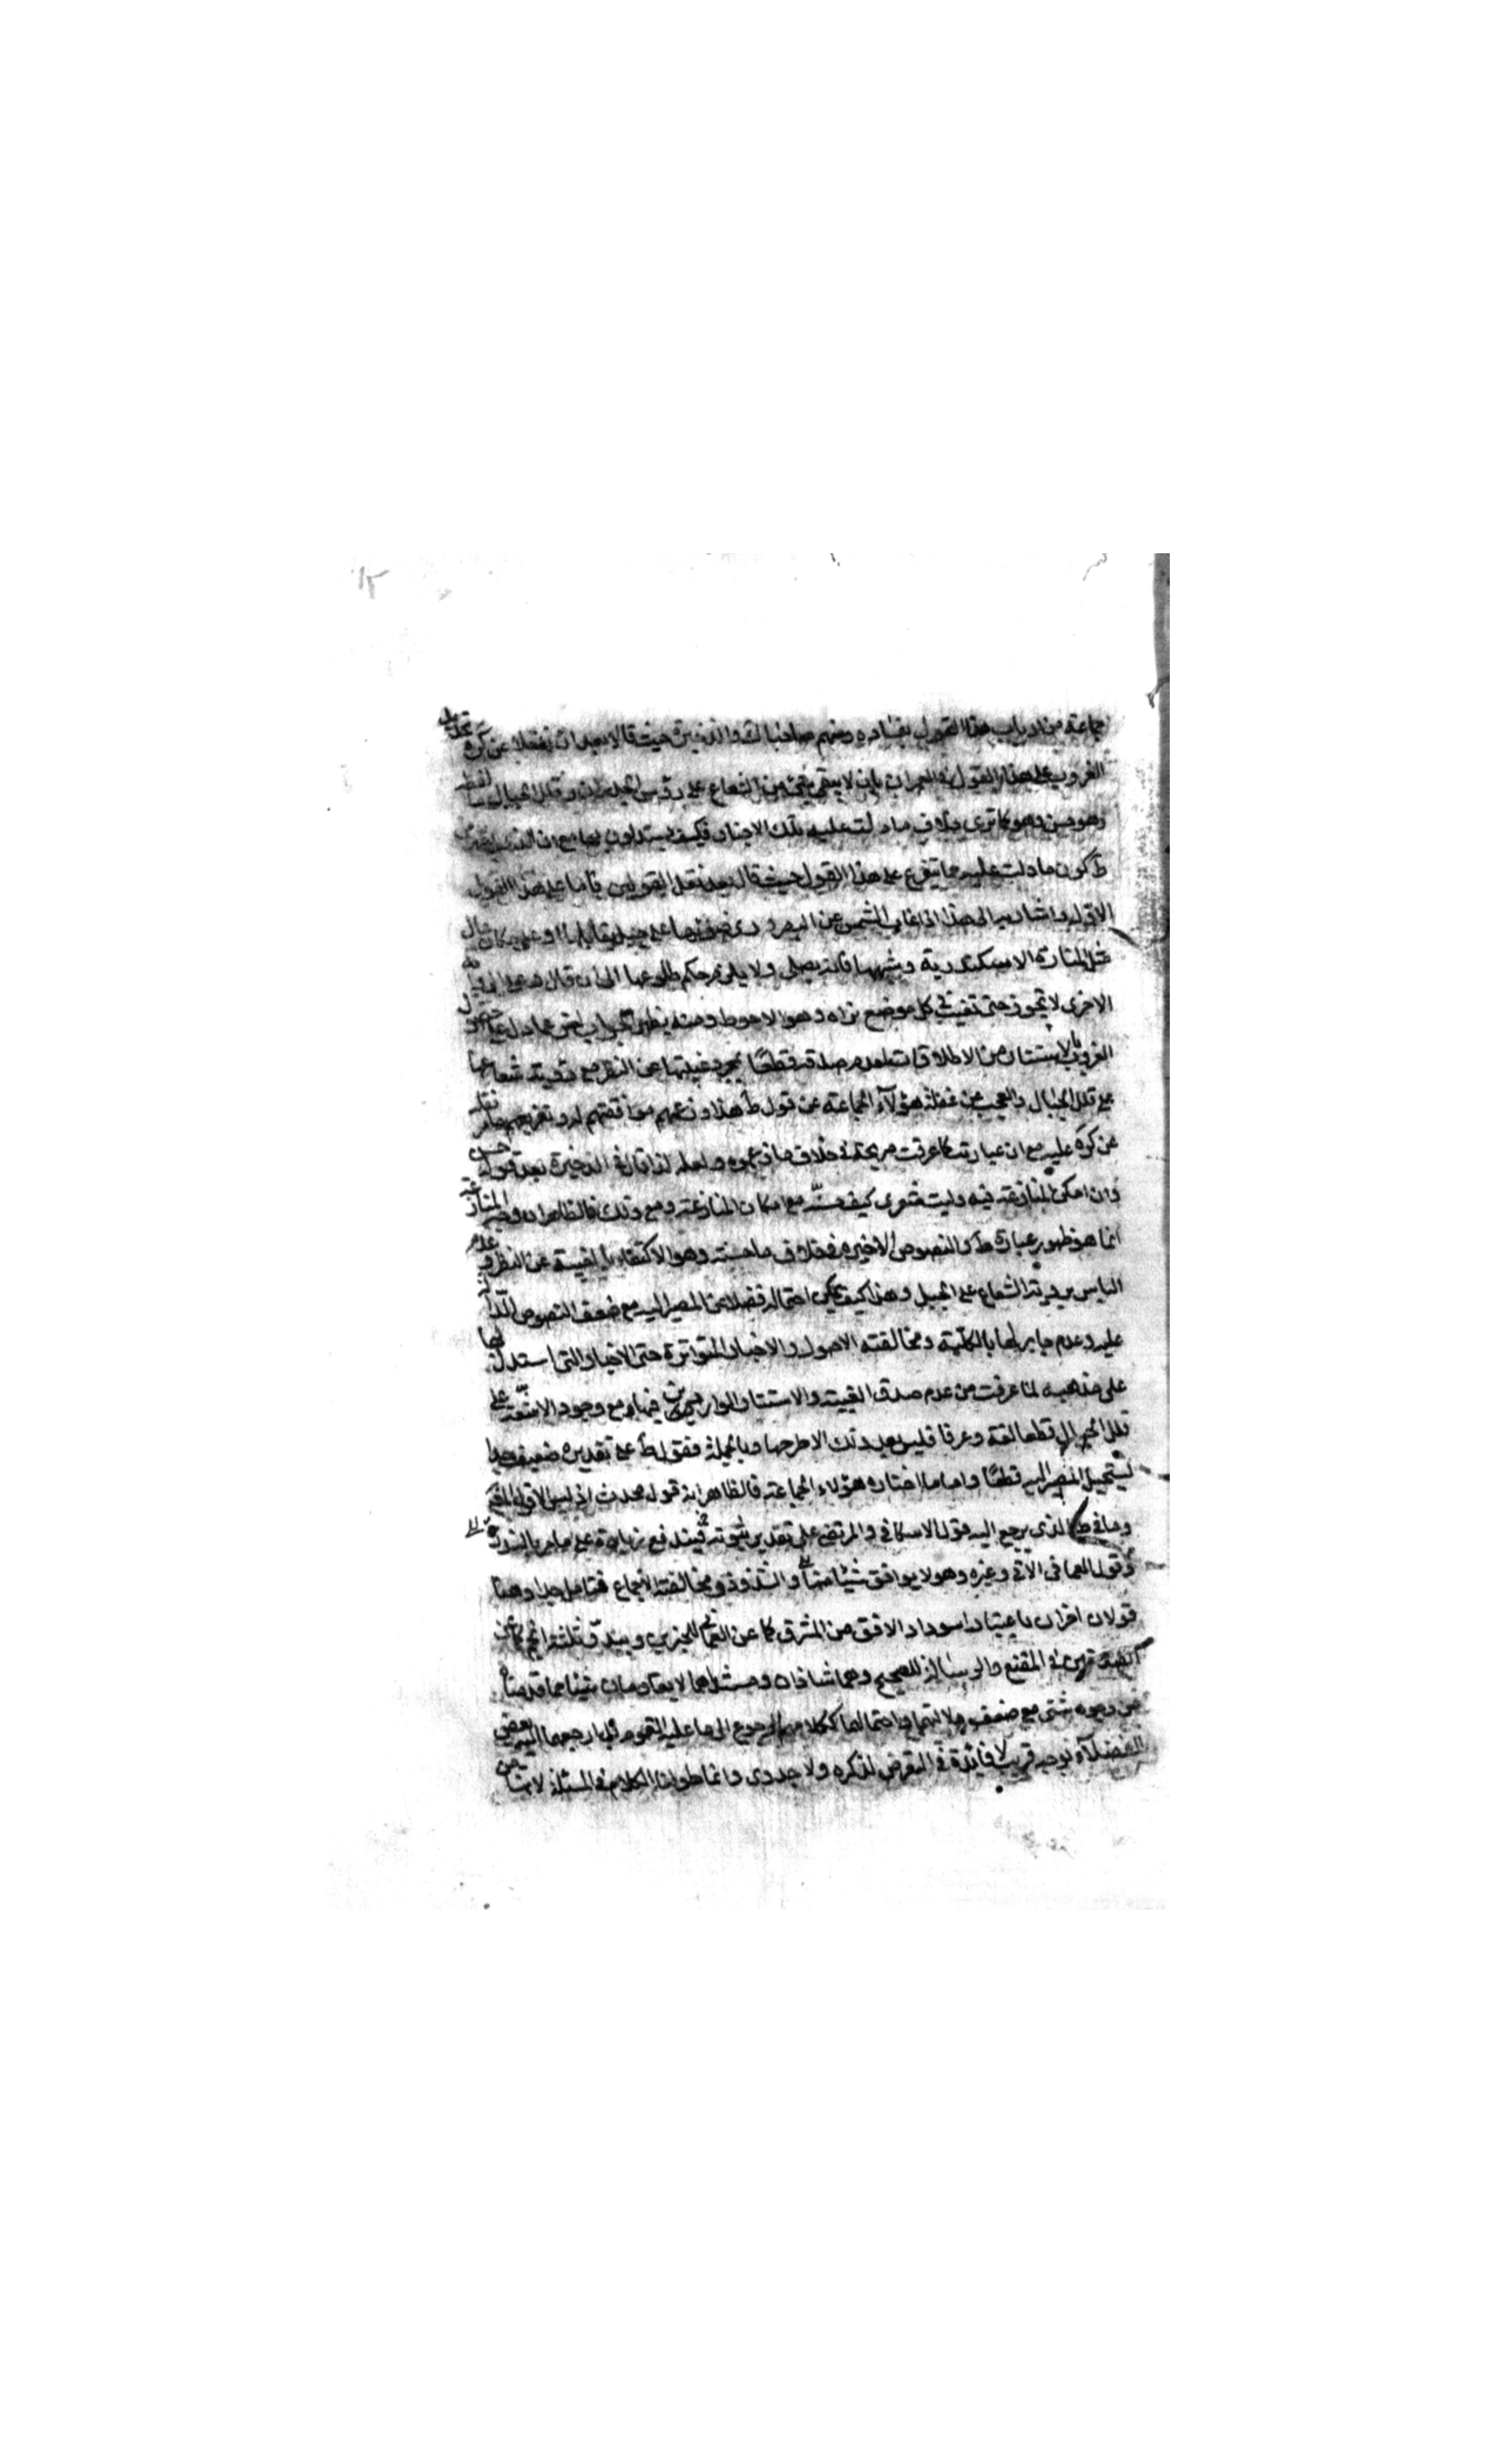 ١٢
جماعة من ارباب هذا القول بفساده ومنهم صاحبا لك والذخيرة حيث قالا بعد ان نقلا عن كره تحديد
الغروب على هذا القول في العمران بان لا يبقى شئ من الشعاع على رؤس الجدران وقلل الجبال لفظه
وهو حسن وهو كما ترى خلاف ما دلت عليه تلك الاخبار فكيف يستدلون بها مع ان
ط كون ما دلت عليه مما يتفرع على هذا القول حيث قال بعد نقل القولين فاما على هذا القول
الاول واشار به الى هذا اذا غابت الشمس عن البصر وراى ضوئها على جبل يقابلها او على مكان عال
مثل منارة الاسكندرية وشبهها فانه يصلى ولا يلزمه حكم طلوعها الى ان قال وعلى الرواية
الاخرى لا تجوز حتى تغيب في كل موضع تراه وهو الاحوط ومنه يظهر الجواب اخر عما دل على حصول
الغروب بالاستتار من الاطلاقات لعدم صدقه قطعا بمجرد غيبتها عن النظر مع رؤية شعاعها
على قلل الجبال والعجب من غفلة هؤلاء الجماعة عن قول ط هذا وزعمهم موافقتهم له وتفريعهم ما مر نقله
عن كره عليه مع ان عبارته كما عرفت صريحة في خلاف ما زعموه ولعله لذا قال في الذخيرة بعد قوله حسن
وان امكن المنازعة فيه وليت شعرى كيف حسنه مع امكان المنازعة ومع ذلك فالظاهر ان وجه المنازعة
انما هو ظهور عبارة ط والنصوص الاخيرة في خلاف ما حسنه وهو الاكتفاء بالغيبة عن النظر وعدم
الباس برؤية الشعاع على الجبل وهذا كيف يمكن احتماله فضلا عن المصير اليه مع ضعف النصوص الدالة
عليه وعدم جابر لها بالكلية ومخالفته الاصول والاخبار المتواترة حتى الاخبار التى استدل لها
على مذهبه لما عرفت من عدم صدق الغيبة والاستتار الواردين فيها مع وجود الاشعة على
قلل الجبال قطعا لغة وعرفا فليس بعد ذلك الا طرحها وبالجملة فقول ط على تقديره ضعيف جدا
يستحيل المصير اليه قطعا واما ما اختاره هؤلاء الجماعة فالظاهر انه قول محدث اذ ليس الا قول المحكى
وما في ط الذى يرجع اليه قول الاسكافى والمرتضى على تقدير ثبوته فيندفع زيادة على ما مر بالندرة
وقول العمانى الآتى وغيره وهو لا يوافق شيئا منها والشذوذ ومخالفة الاجماع فتامل جدا وهنا
قولان اخران باعتبار اسوداد الافق من المشرق كما عن العمانى للخبرين وببدو ثلثة انجم كما عن
الصدوقين في المقنع والرسالة للصحيح وهما شاذان ومستندهما لا يعادلان شيئا مما قدمناه
من وجوه شتى مع ضعف دلالتهما واحتمالهما ككلامهم الرجوع الى ما عليه القوم بل ارجعهما اليه بعض
الفضلاء بوجه قريب لا فائدة في التعرض لذكره ولا جدوى وانما طولنا الكلام في المسئلة لانها من